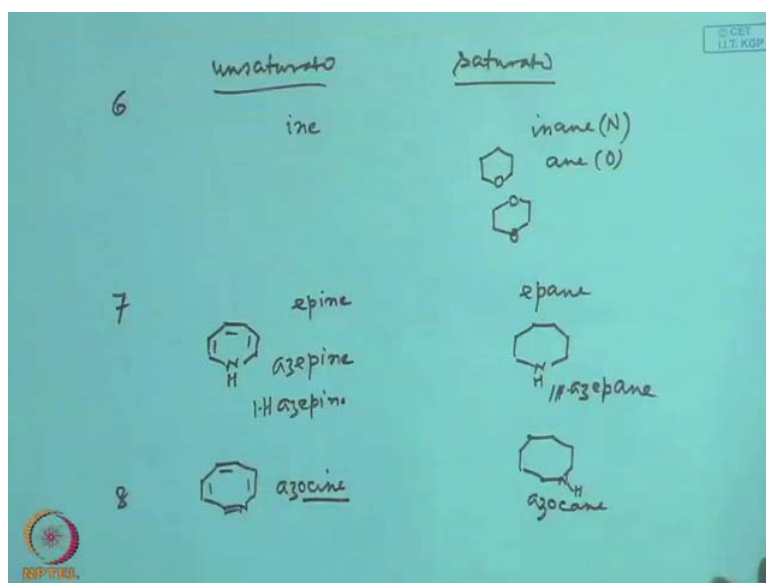 © CET
I.I.T. KGP
unsaturato saturato
6 ine inane (N)
ane (O)
O
O
O
7 epine epane
N
H
azepine
N
H
1H-azepane
1-H azepin.
8 azocine
N
H
azocane
NPTEL